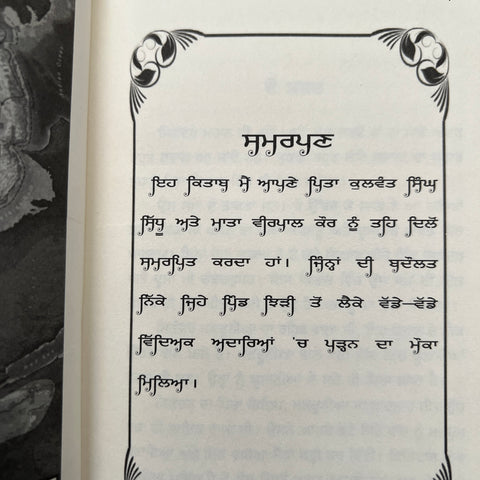 ਸਮਰਪਣ
ਇਹ ਕਿਤਾਬ ਮੈਂ ਆਪਣੇ ਪਿਤਾ ਕੁਲਵੰਤ ਸਿੰਘ
ਸਿੱਧੂ ਅਤੇ ਮਾਤਾ ਵੀਰਪਾਲ ਕੌਰ ਨੂੰ ਤਹਿ ਦਿਲੋਂ
ਸਮਰਪਿਤ ਕਰਦਾ ਹਾਂ। ਜਿੰਨ੍ਹਾਂ ਦੀ ਬਦੌਲਤ
ਨਿੱਕੇ ਜਿਹੇ ਪਿੰਡ ਝਿੜੀ ਤੋਂ ਲੈਕੇ ਵੱਡੇ-ਵੱਡੇ
ਵਿੱਦਿਅਕ ਅਦਾਰਿਆਂ 'ਚ ਪੜ੍ਹਨ ਦਾ ਮੌਕਾ
ਮਿਲਿਆ।